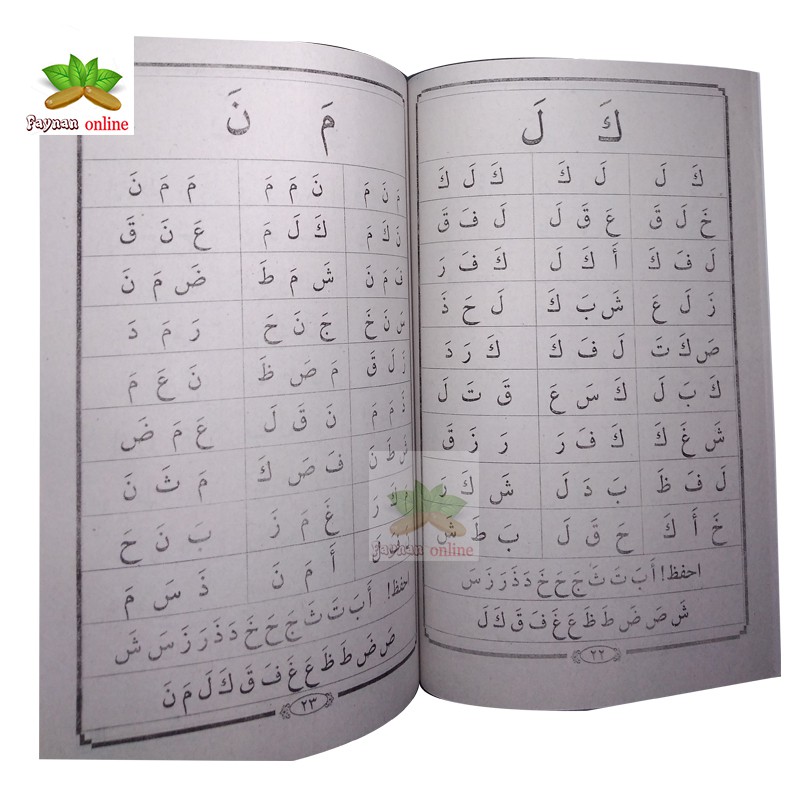 Faynan online
كَ لَ
كَ لَ لَ كَ كَ لَ كَ
خَ لَ قَ عَ قَ لَ لَ فَ قَ
لَ فَ كَ أَ كَ لَ كَ فَ رَ
زَ لَ عَ شَ بَ كَ لَ حَ ذَ
صَ كَ تَ لَ فَ كَ كَ رَ دَ
كَ بَ لَ كَ سَ عَ قَ تَ لَ
شَ غَ كَ كَ فَ رَ رَ زَ قَ
لَ فَ ظَ بَ دَ لَ شَ كَ رَ
خَ أَ كَ حَ قَ لَ بَ طَ شَ
احفظ! أَ بَ تَ ثَ جَ حَ خَ دَ ذَ رَ زَ سَ
شَ صَ ضَ طَ ظَ عَ غَ فَ قَ كَ لَ
٢٢
مَ نَ
مَ نَ مَ نَ مَ مَ مَ مَ نَ
نَ كَ مَ كَ لَ مَ عَ نَ قَ
مَ نَ شَ مَ طَ ضَ مَ نَ
سَ نَ خَ جَ نَ حَ رَ مَ دَ
زَ لَ قَ مَ صَ ظَ نَ عَ مَ
مَ مَ نَ قَ لَ عَ مَ ضَ
شَ طَ نَ فَ صَ كَ مَ ثَ نَ
كَ رَ غَ مَ زَ بَ نَ حَ
أَ مَ نَ ذَ سَ مَ
احفظ! أَ بَ تَ ثَ جَ حَ خَ دَ ذَ رَ زَ سَ شَ
صَ ضَ طَ ظَ عَ غَ فَ قَ كَ لَ مَ نَ
٢٣
Faynan online